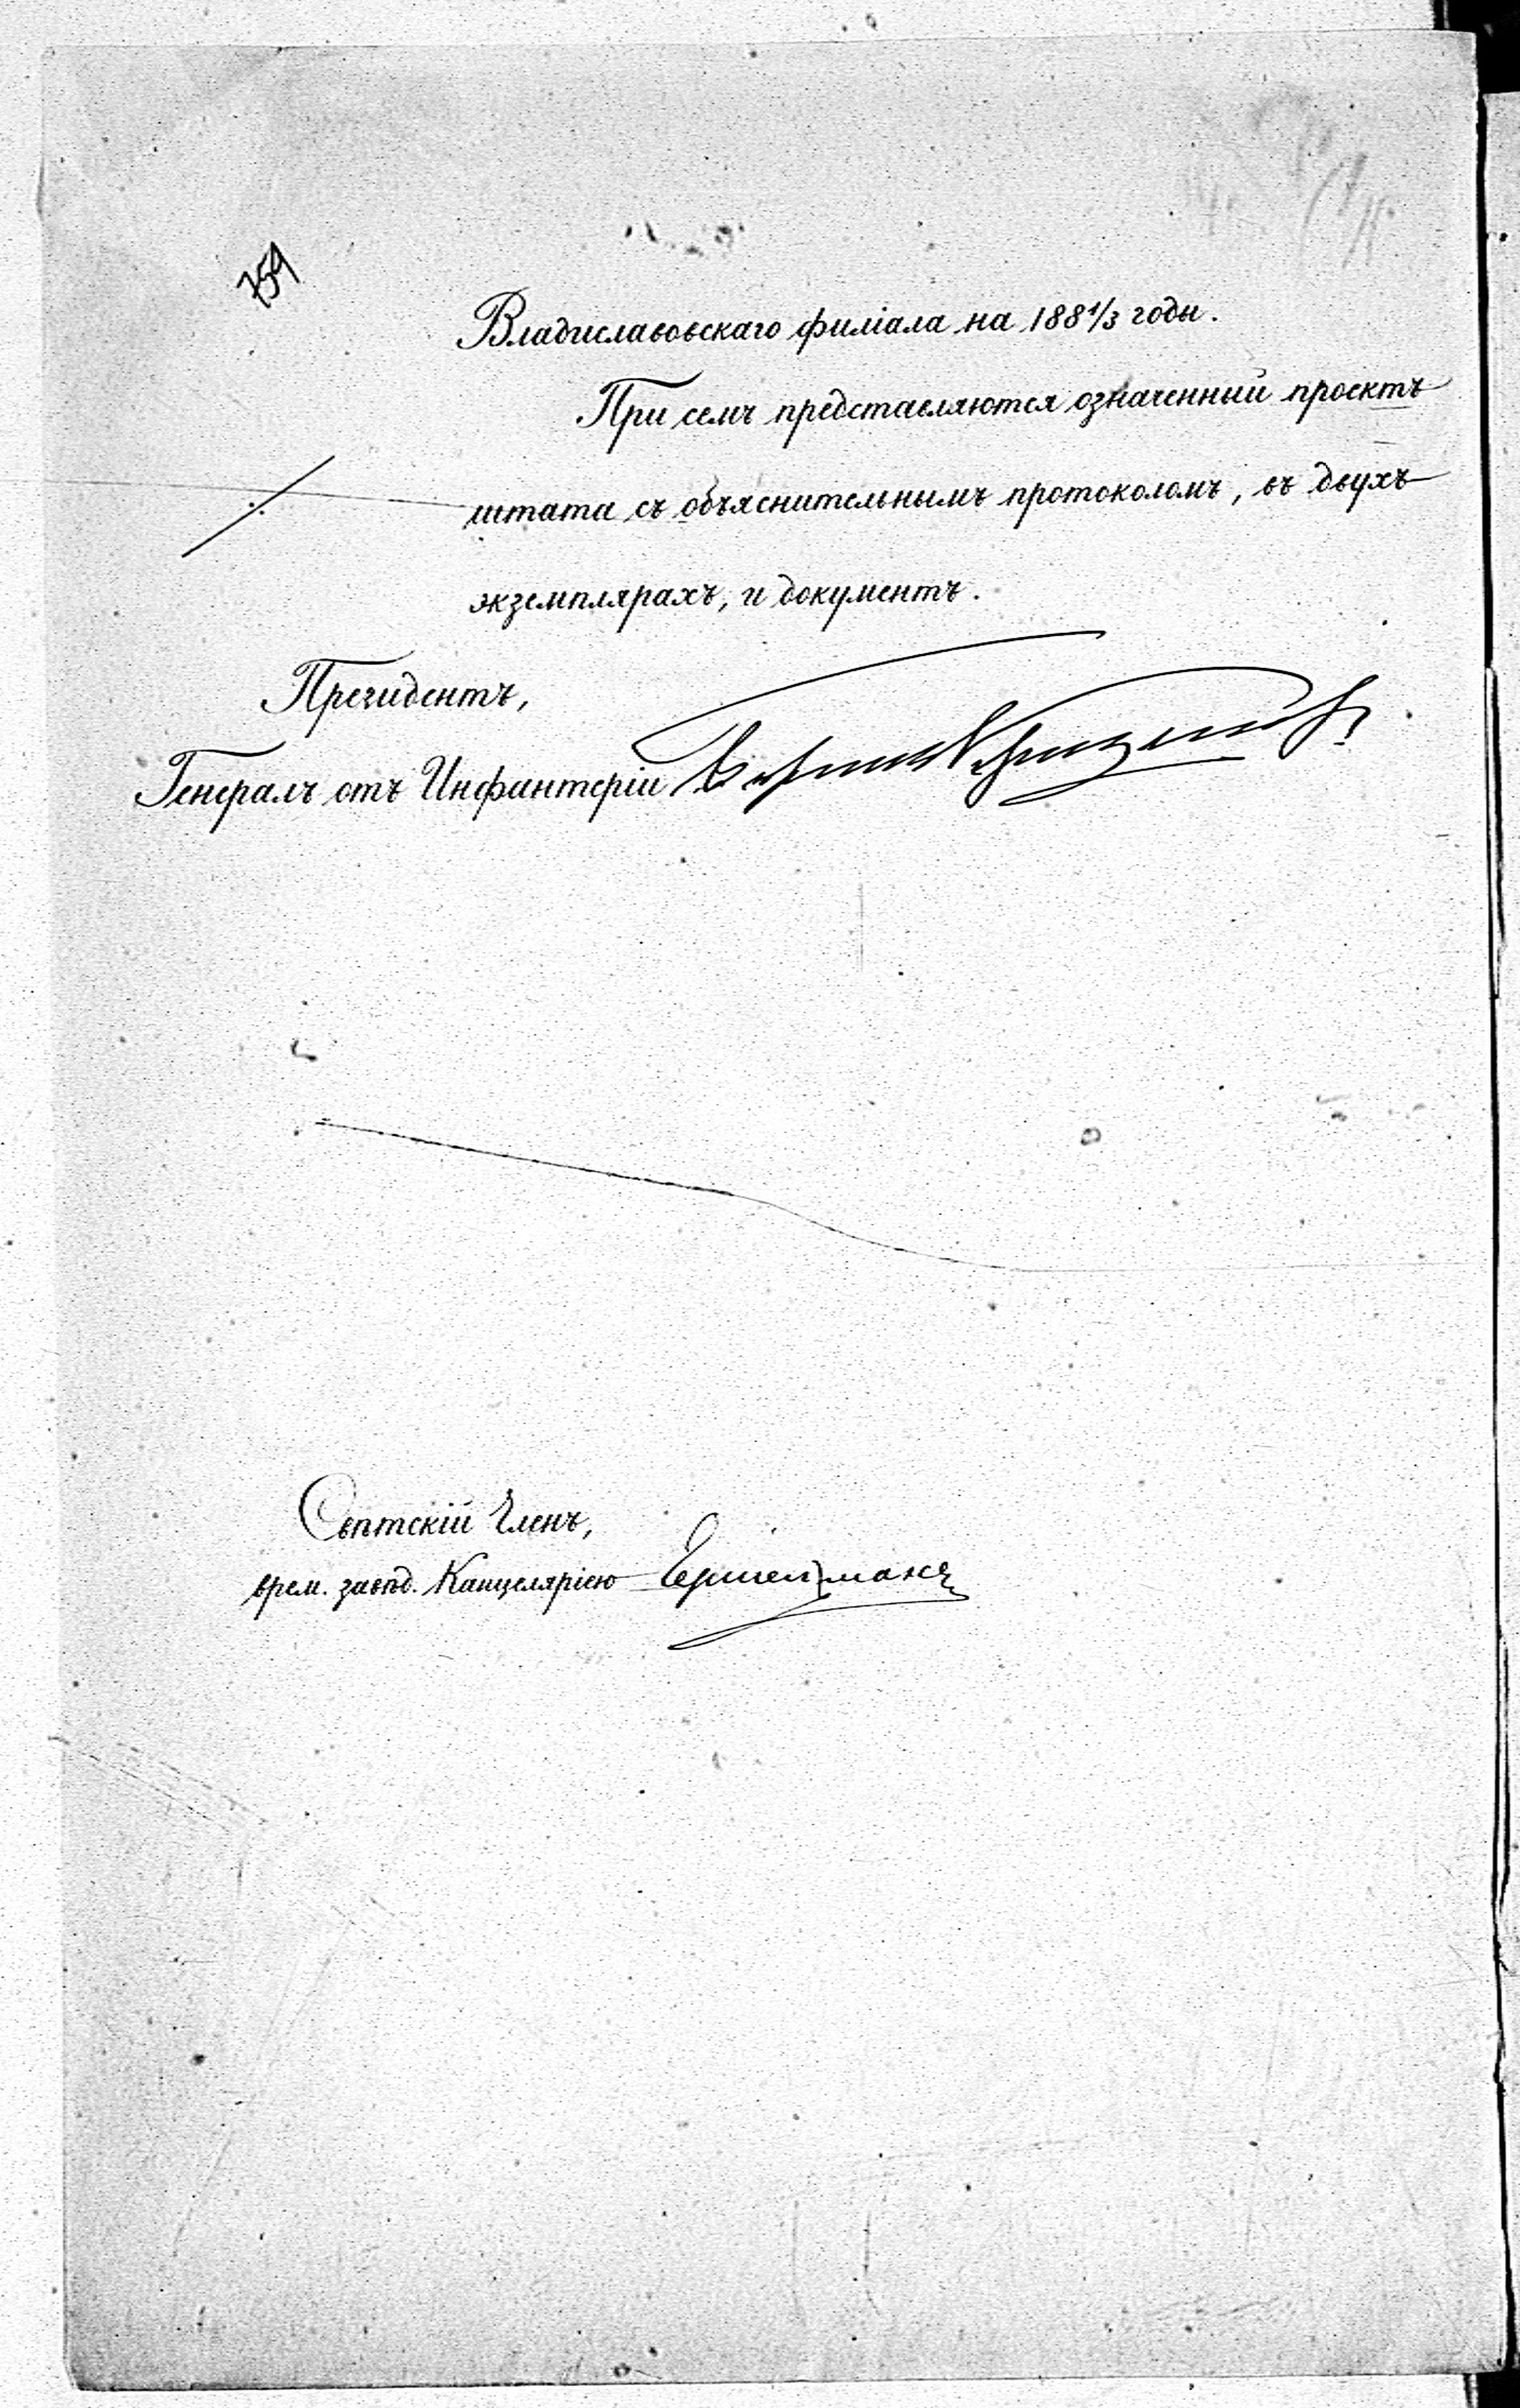 759
Владиславовскаго филіала на 188 1/3 годы.
При семъ представляются означенный проектъ
штата съ объяснительнымъ протоколомъ, въ двухъ
экземплярахъ, и документъ.
Президентъ,
Генералъ отъ Инфантеріи
Свѣтскій Членъ,
врем. завѣд. Канцеляріею